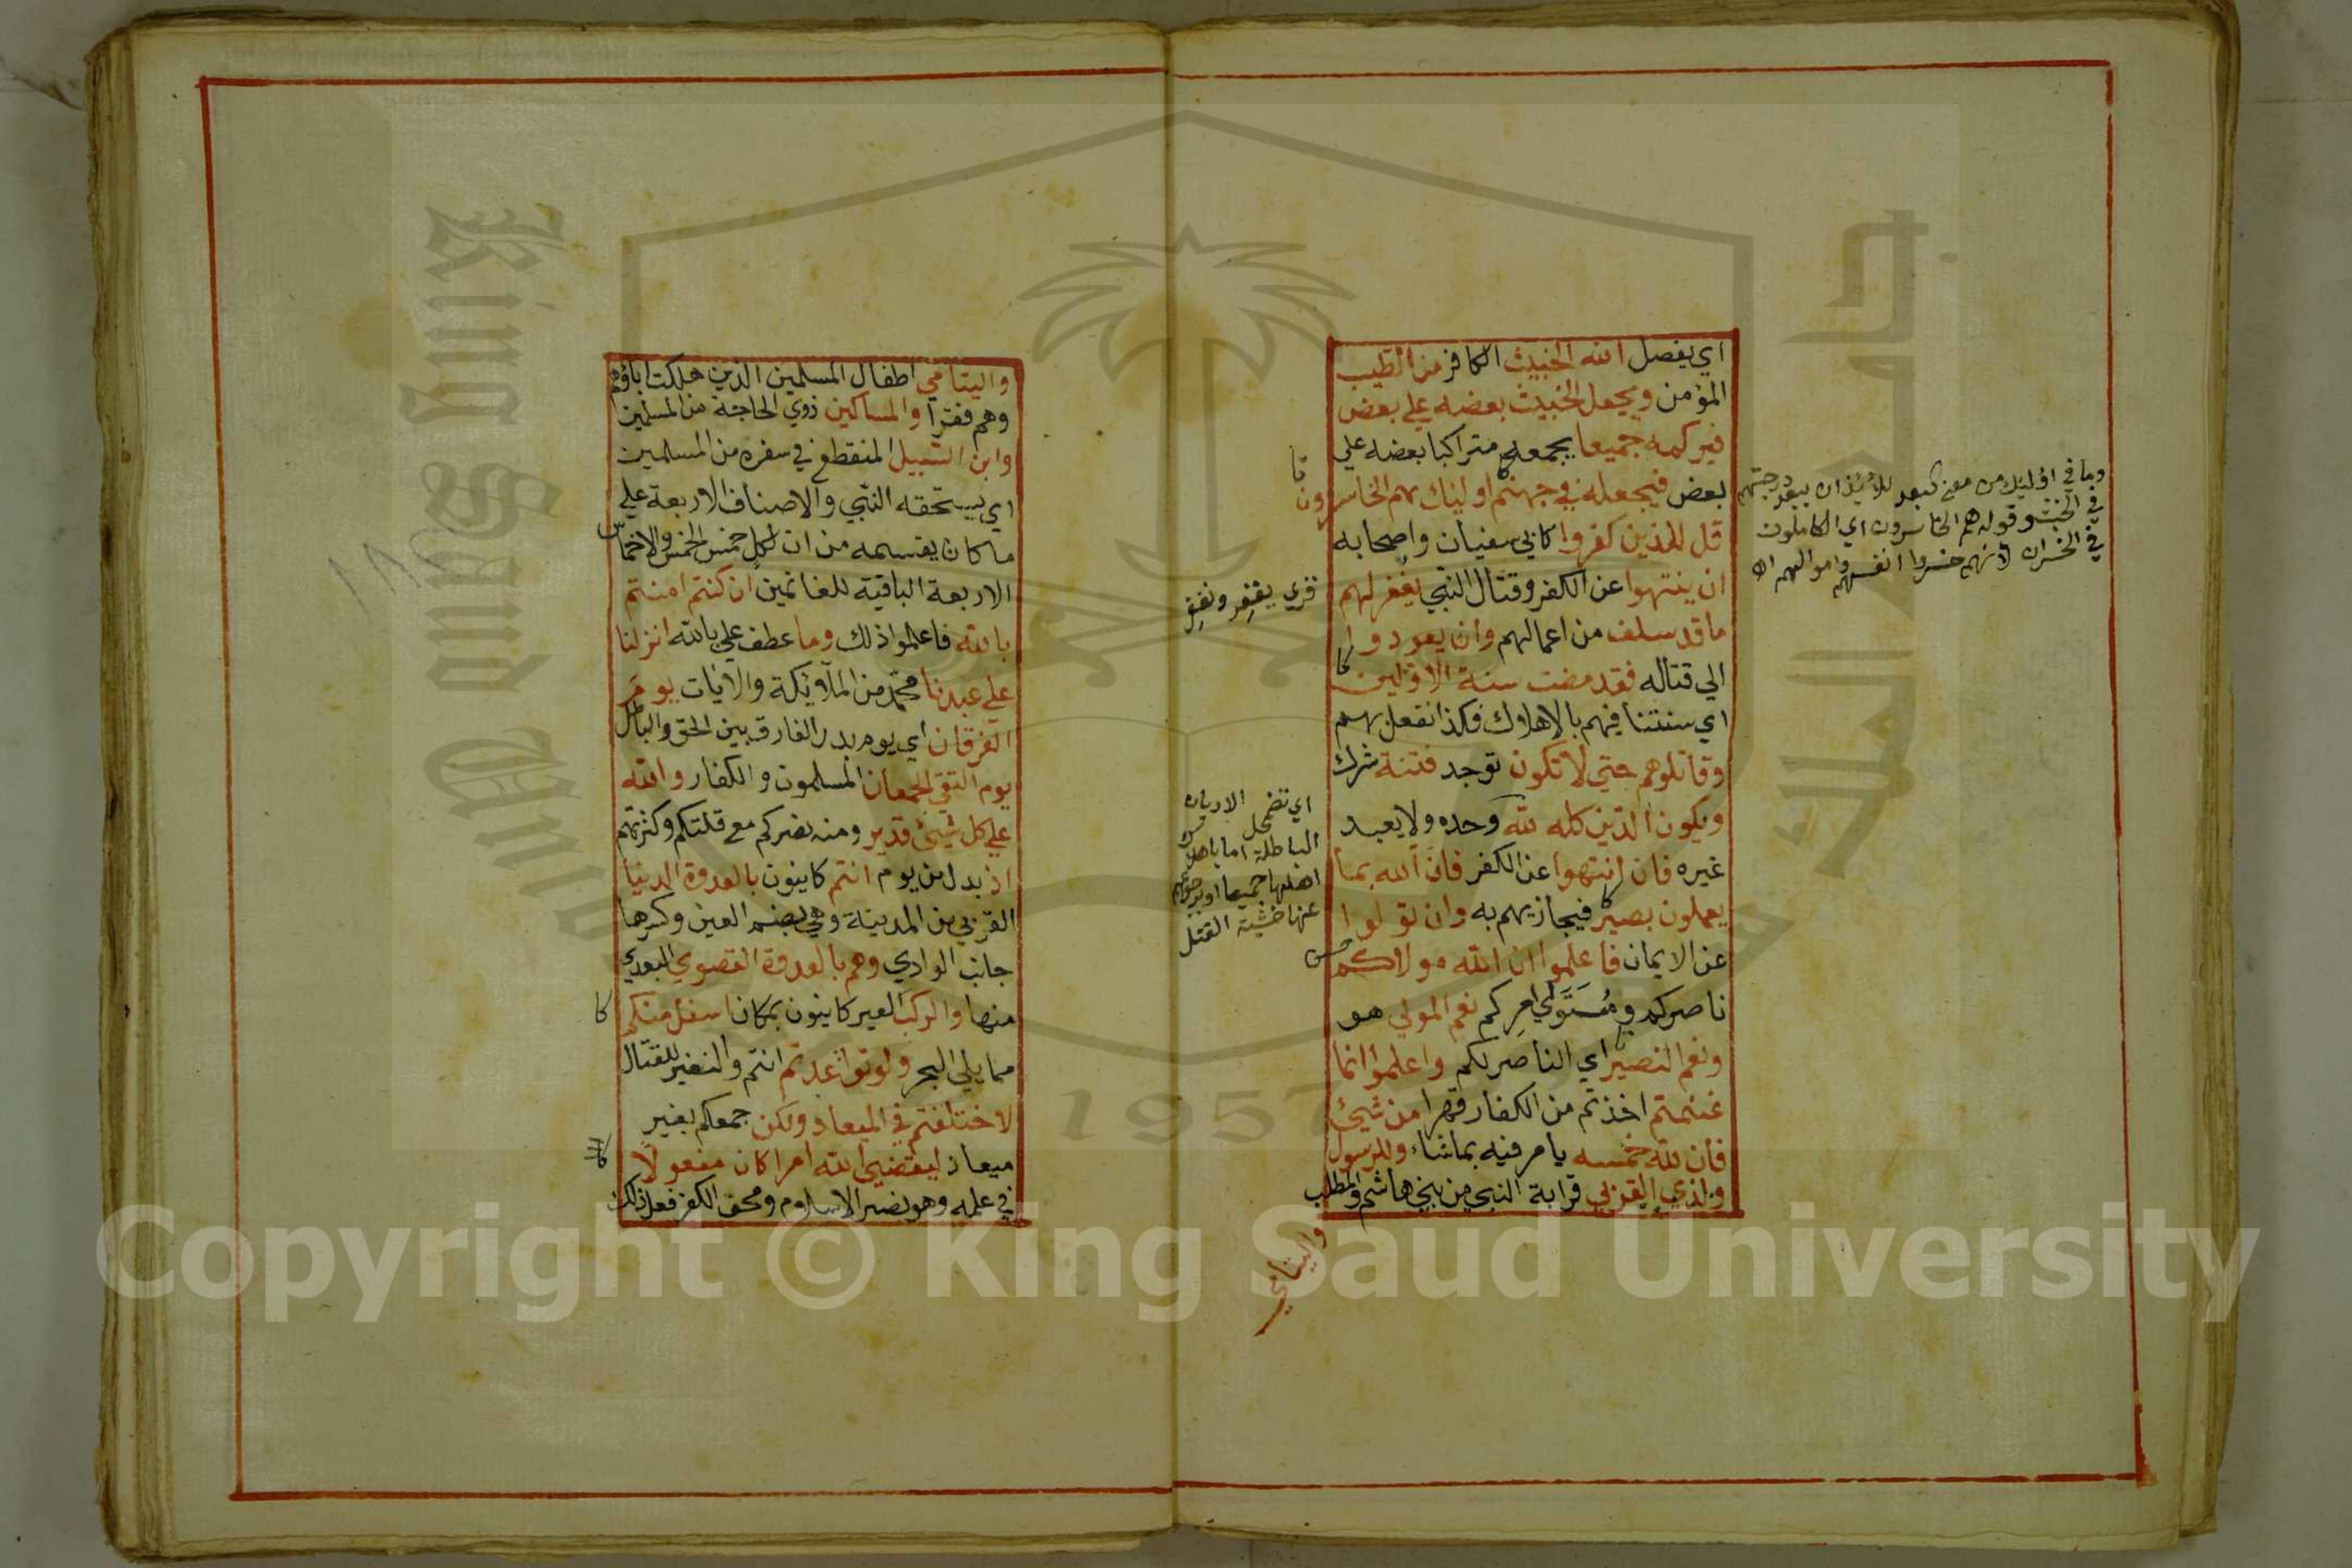 اي يفصل الله الخبيث الكافر من الطيب
المؤمن ويجعل الخبيث بعضه علي بعض
فيركمه جميعا يجمعه متراكبا بعضه علي
بعض فيجعله في جهنم اوليٓك هم الخاسرون
قل للذين كفروا كابي سفيان واصحابه
ان ينتهوا عن الكفر وقتال النبي يغفر لهم
ما قد سلف من اعمالهم وان يعودوا
الي قتاله فقد مضت سنة الاولين
اي سنتنا فيهم بالاهلاك فكذا نفعل بهم
وقاتلوهم حتي لا تكون توجد فتنة شرك
ويكون الدين كله لله وحده ولا يعبد
غيره فان انتهوا عن الكفر فان الله بما
يعملون بصير فيجازيهم به وان تولوا
عن الايمان فاعلموا ان الله مولاكم
ناصركم ومُتَوَلّي امركم نعم المولي هو
ونعم النصير اي الناصر لكم واعلموا انما
غنمتم اخذتم من الكفار قهرا من شيئ
فان لله خمسه يامر فيه بما شاء وللرسول
ولذي القربي قرابة النبي من بني هاشم والمطلب
واليتامي
وما في اوليك من معني البعد للايذان ببعد درجتهم
في الخبث وقوله هم الخاسرون اي الكاملون
في الخسران لانهم خسروا انفسهم واموالهم اه
قري يغفر ونغفر
اي تضمحل الاديان
الباطلة اما باهلاك
اهلها جميعا او برجوعهم
عنها خشية القتل
واليتامي اطفال المسلمين الذين هلكت اباؤهم
وهم فقرا والمساكين ذوي الحاجة من المسلمين
وابن السبيل المنقطع في سفره من المسلمين
اي يستحقه النبي والاصناف الاربعة علي
ما كان يقسمه من ان لكل خمس الخمس والاخماس
الاربعة الباقية للغانمين ان كنتم امنتم
بالله فاعلموا ذلك وما عطف علي بالله انزلنا
علي عبدنا محمد من الملآئكة والايات يوم
الفرقان اي يوم بدر الفارق بين الحق والباطل
يوم التقي الجمعان المسلمون والكفار والله
علي كل شيئ قدير ومنه نصركم مع قلتكم وكثرتهم
اذ بدل من يوم انتم كاينون بالعدوة الدنيا
القربي من المدينة وهي بضم العين وكسرها
جانب الوادي وهم بالعدوة القصوي البعدي
منها والركب العير كاينون بمكان اسفل منكم
مما يلي البحر ولو تواعدتم انتم والنفير للقتال
لاختلفتم في الميعاد ولكن جمعكم بغير
ميعاد ليقضي الله امرا كان مفعولا
في علمه وهو نصر الاسلام ومحق الكفر فعل ذلك
King Saud University
1957
Copyright © King Saud University